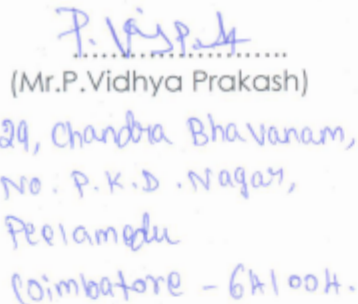 (Mr.P.Vidhya Prakash)
29, Chandra Bhavanam,
No. P.K.D. Nagar,
Peelamedu
Coimbatore - 641004.